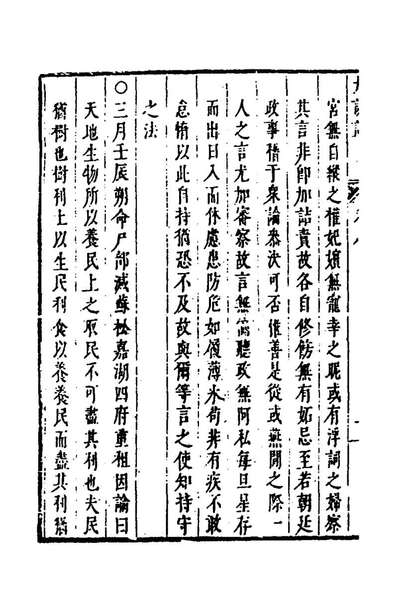 宮無自縱之權妃嬪無寵幸之昵或有浮詞之婦察
其言非卽加詰責故各自修飭無有妬忌至若朝廷
政事稽于衆論叅決可否惟善是從或燕閒之際一
人之言尤加審察故言無偏聽政無阿私每旦星存
而出日入而休慮患防危如履薄氷苟非有疾不敢
怠惰以此自持猶恐不及故與爾等言之使知持守
之法
○三月壬辰朔命戸部減蘇松嘉湖四府重租因諭曰
天地生物所以養民上之取民不可盡其利也夫民
猶樹也樹利土以生民利食以養養民而盡其利猶